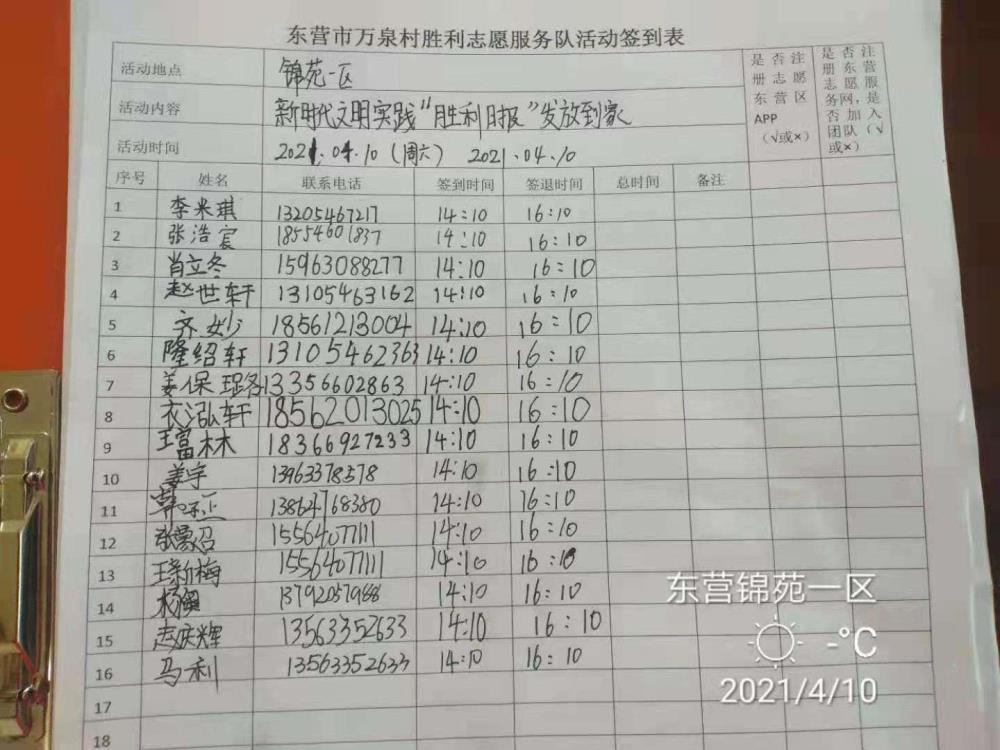 东营市万泉村胜利志愿服务队活动签到表
活动地点 锦苑一区
是否注册志愿东营区APP（√或×）
是否注册东营志愿服务网，是否加入团队（√或×）
活动内容 新时代文明实践“胜利日报”发放到家
活动时间 2021.04.10（周六） 2021.04.10
序号 姓名 联系电话 签到时间 签退时间 总时间 备注
1 李米琪 13205467217 14:10 16:10
2 张浩宸 18554601837 14:10 16:10
3 肖立冬 15963088277 14:10 16:10
4 赵世轩 13105463162 14:10 16:10
5 齐妙 18561213004 14:10 16:10
6 隆绍轩 13105462363 14:10 16:10
7 姜保 13356602863 14:10 16:10
8 衣泓轩 18562013025 14:10 16:10
9 王富林 18366927233 14:10 16:10
10 姜宇 13963378578 14:10 16:10
11 13864768380 14:10 16:10
12 15564077111 14:10 16:10
13 王新梅 15564077111 14:10 16:10
14 杨 13792057988 14:10 16:10
15 庆辉 13563352633 14:10 16:10
16 马利 13563352633 14:10 16:10
17
18
东营锦苑一区
-°C
2021/4/10